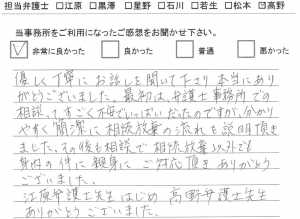 担当弁護士 □江原 □黒澤 □星野 □石川 □若生 □松本 ☑高野
当事務所をご利用になったご感想をお聞かせ下さい。
☑ 非常に良かった □ 良かった □ 普通 □ 悪かった
優しく丁寧にお話しを聞いて下さり本当にあり
がとうございました。最初は、弁護士事務所での
相談ってすごく不安でいっぱいだったのですが、分かり
やすく簡潔に相続放棄の流れを説明頂き
ました。その後も相談で相続放棄以外にも
身内の件に親身にご対応頂きありがとう
ございました。
江原弁護士先生はじめ高野弁護士先生
ありがとうございました。